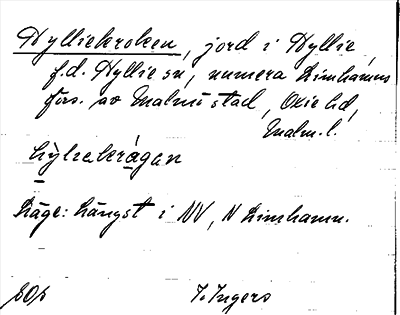 Hylliekroken, jord i Hyllie,
f.d. Hyllie sn, numera Limhamns
förs. av Malmö stad, Oxie hd,
Malm.l.
hỳlnekrågan
Läge: Längst i NV, N Limhamn.
I. Ingers